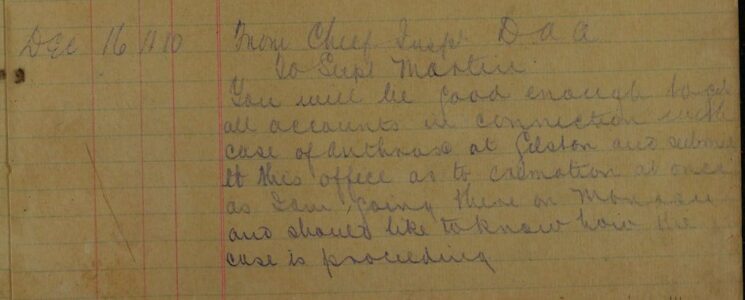 DEC 16 1910 From Chief Insp' D A A
to Supt Martin
You will be good enough to get
all accounts in connection with
case of Anthrax at Gilston and submit
to this office as to cremation at once
as I am going there on Monday
and should like to know how the
case is proceeding